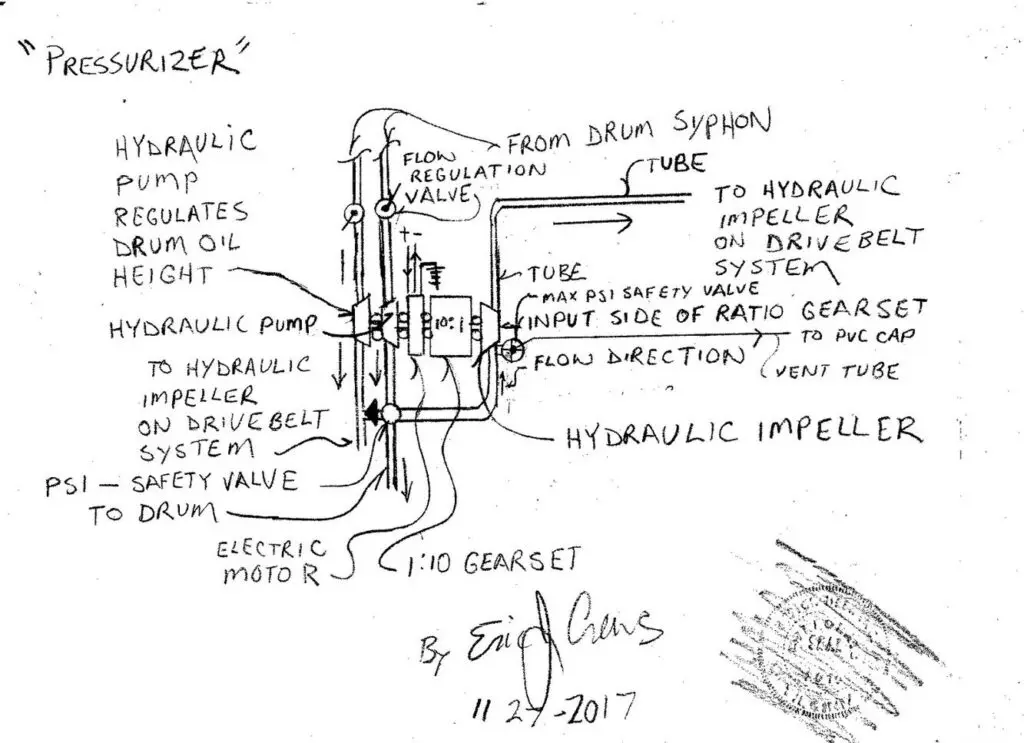 "PRESSURIZER"
HYDRAULIC
PUMP
REGULATES
DRUM OIL
HEIGHT
FROM DRUM SYPHON
FLOW
REGULATION
VALVE
TUBE
TO HYDRAULIC
IMPELLER
ON DRIVE BELT
SYSTEM
+ -
TUBE
MAX PSI SAFETY VALVE
INPUT SIDE OF RATIO GEARSET
HYDRAULIC PUMP
10:1
TO PVC CAP
FLOW DIRECTION
VENT TUBE
TO HYDRAULIC
IMPELLER
ON DRIVE BELT
SYSTEM
HYDRAULIC IMPELLER
PSI - SAFETY VALVE
TO DRUM
ELECTRIC
MOTOR
1:10 GEARSET
By Eric Crews
11 27-2017
SEAL